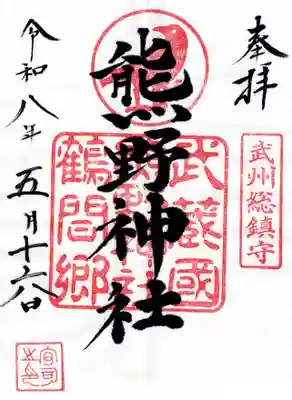 奉拝
武州総鎮守
熊野神社
武蔵國
鶴間郷
令和八年五月十六日